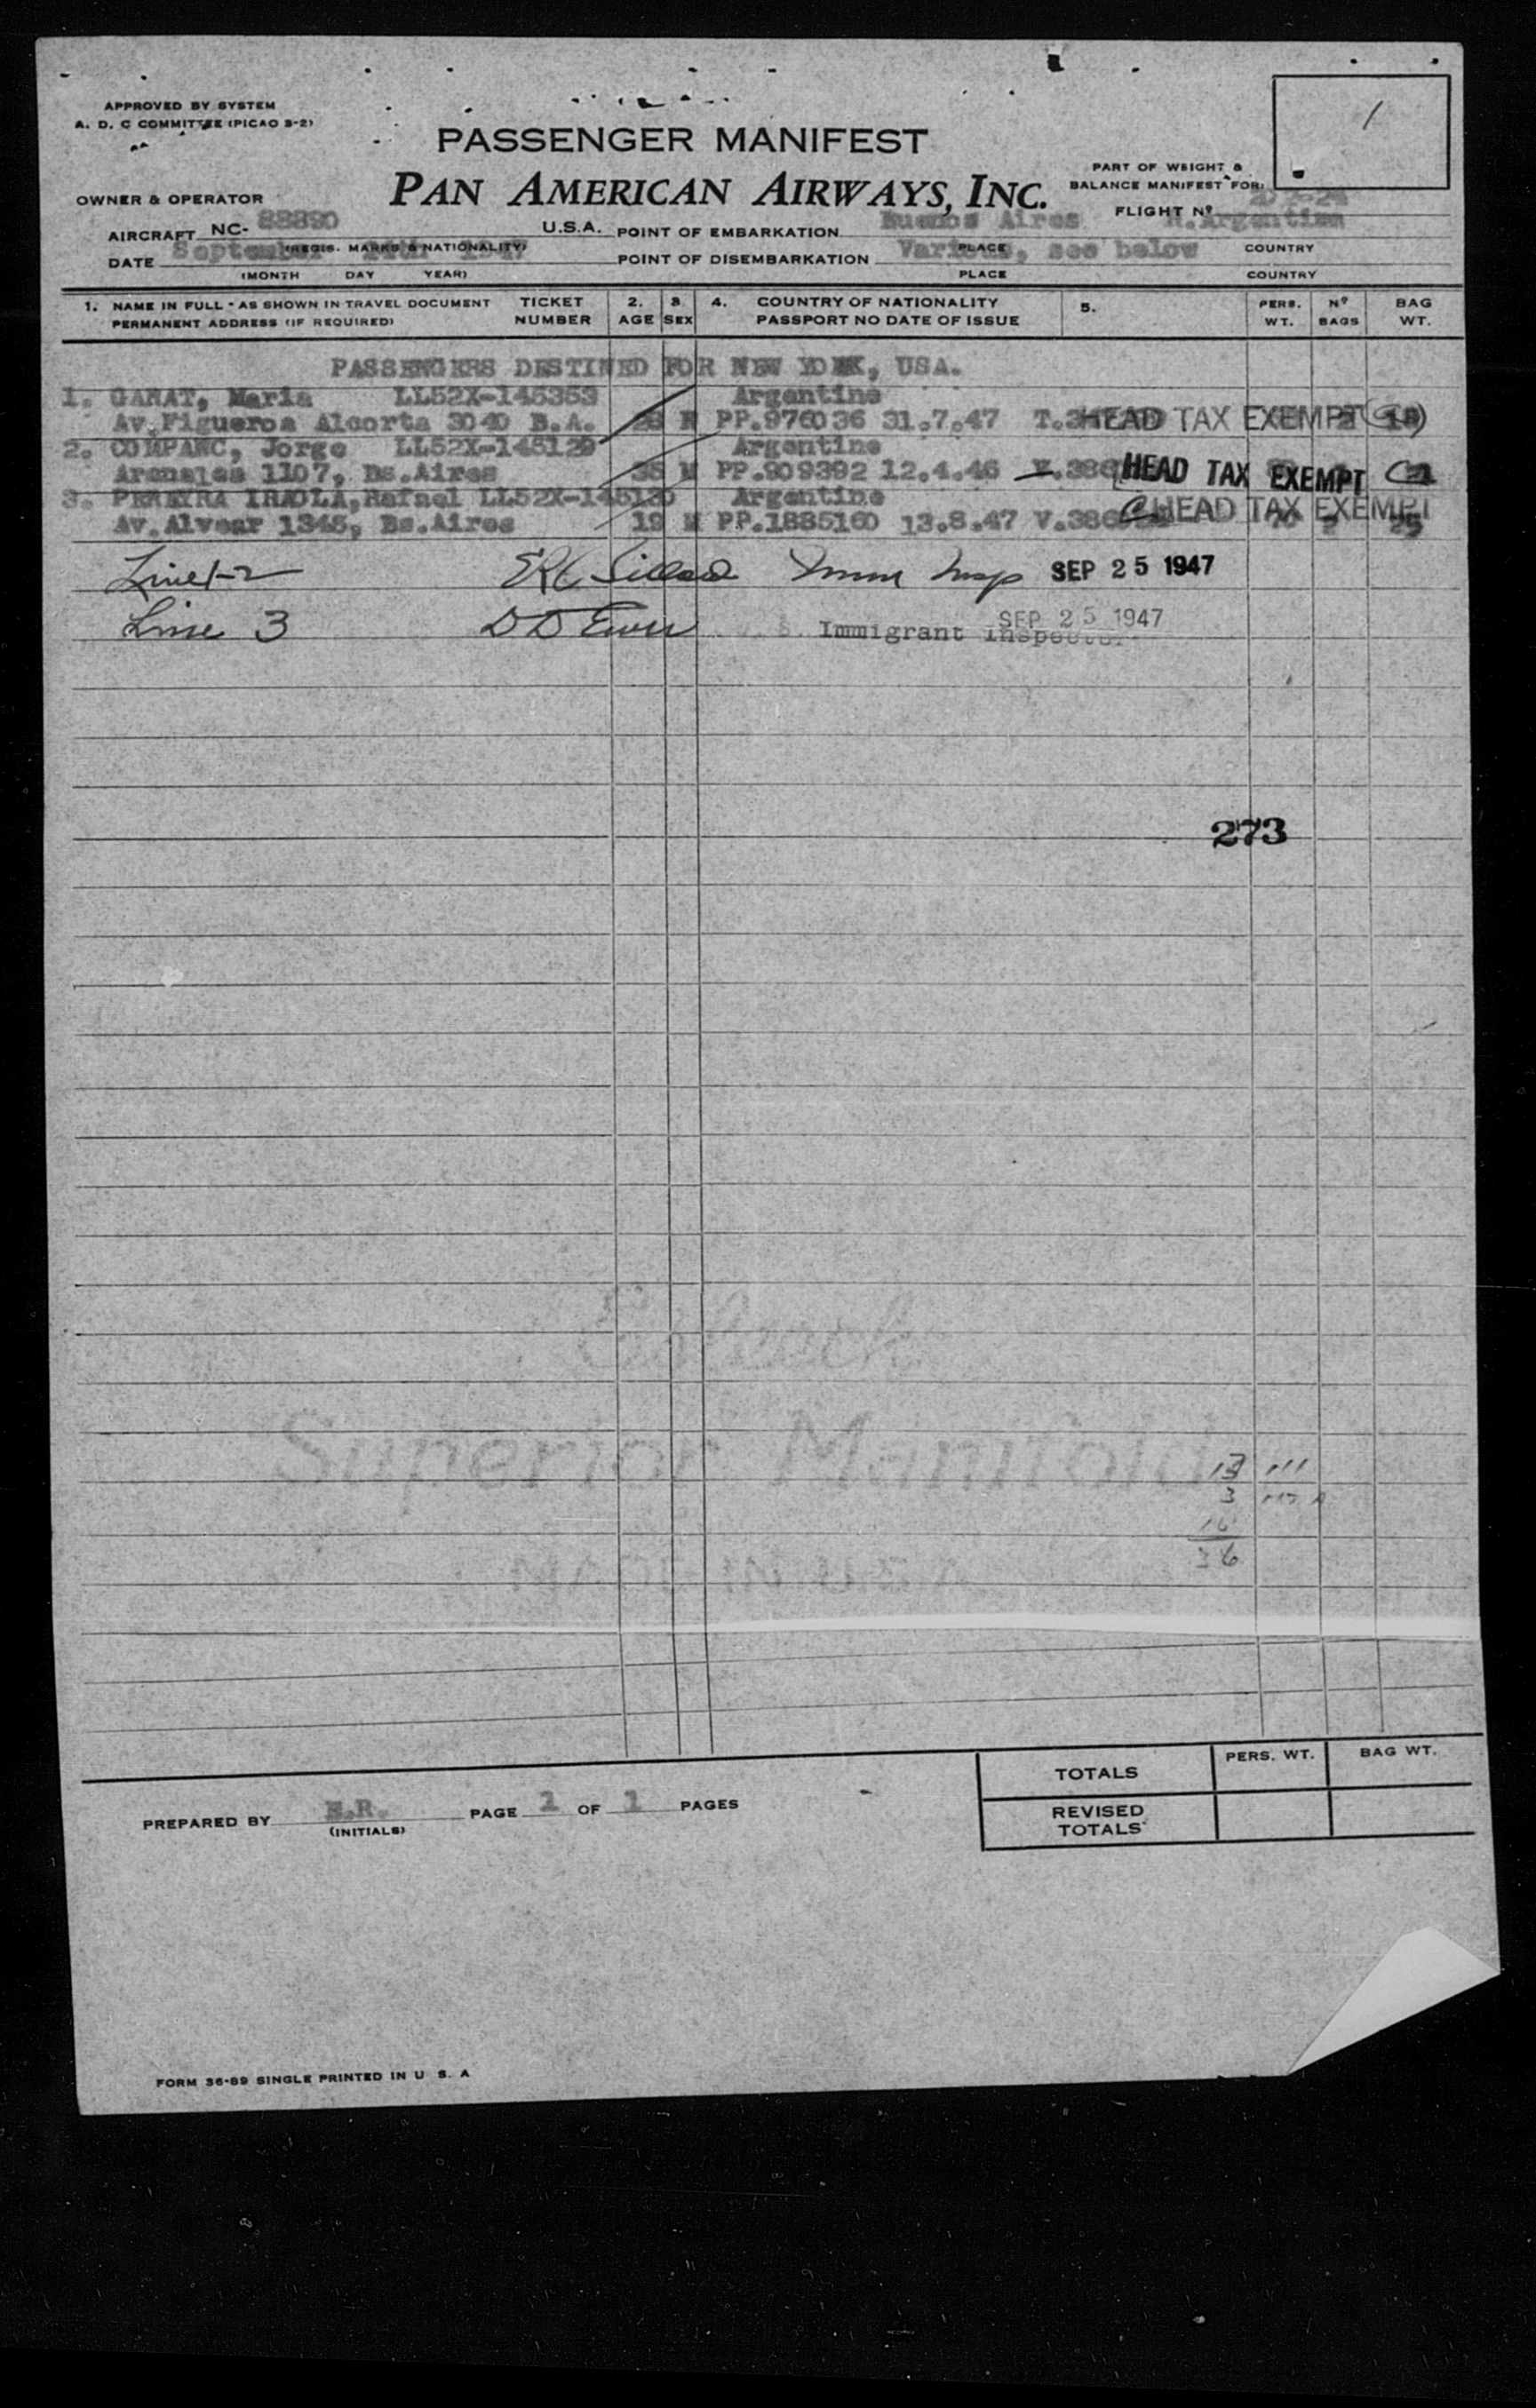 1
APPROVED BY SYSTEM
A. D. C COMMITTEE (PICAO S-2)
PASSENGER MANIFEST
PART OF WEIGHT &
BALANCE MANIFEST FOR:
OWNER & OPERATOR
PAN AMERICAN AIRWAYS, INC.
FLIGHT Nº
AIRCRAFT NC- 88890 U.S.A. POINT OF EMBARKATION Buenos Aires R.Argentina
(REGIS. MARKS & NATIONALITY) PLACE COUNTRY
DATE September 1947 POINT OF DISEMBARKATION Various, see below
(MONTH DAY YEAR) PLACE COUNTRY
1. NAME IN FULL - AS SHOWN IN TRAVEL DOCUMENT TICKET 2. 3. 4. COUNTRY OF NATIONALITY 5. PERS. Nº BAG
PERMANENT ADDRESS (IF REQUIRED) NUMBER AGE SEX PASSPORT NO DATE OF ISSUE WT. BAGS WT.
PASSENGERS DESTINED FOR NEW YORK, USA.
1. GARAT, Maria LL52X-145353 Argentine
Av.Figueroa Alcorta 3040 B.A. PP.976036 31.7.47 HEAD TAX EXEMPT
2. COMPARC, Jorge LL52X-145129 Argentine
Arenales 1107, Bs.Aires 35 M PP.909392 12.4.46 HEAD TAX EXEMPT
3. PEREYRA IRAOLA, Rafael LL52X-145130 Argentine
Av.Alvear 1345, Bs.Aires 19 M PP.1885160 13.8.47 HEAD TAX EXEMPT 25
Line 1-2 SEP 25 1947
Line 3 SEP 25 1947
Immigrant Inspector
273
Superior Manifold
13
3
PERS. WT. BAG WT.
TOTALS
PREPARED BY PAGE 1 OF 1 PAGES
(INITIALS)
REVISED
TOTALS
FORM 36-89 SINGLE PRINTED IN U S. A